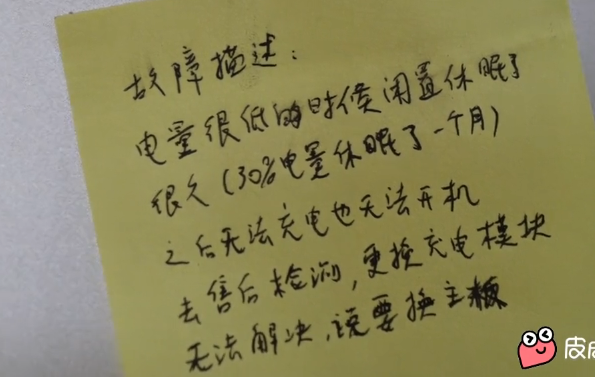 故障描述：
电量很低的时候闲置休眠了
很久（30%电量休眠了一个月）
之后无法充电也无法开机
去售后检测，更换充电模块
无法解决，说要换主板
皮皮